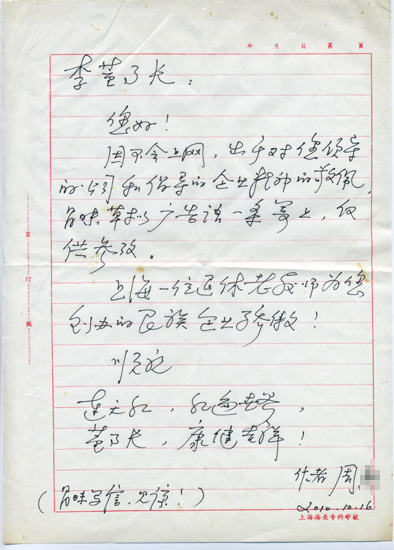 年 月 日 第 页
李董事长:
您好!
因不会上网,出于对您领导
的公司和倡导的企业精神的敬佩,
冒昧草拟广告语一条寄上,仅
供参改。
上海一位退休老教师为您
创办的民族企业而骄傲!
顺祝
连天红,红遍世界,
董事长,康健吉祥!
作者 周
2010.10.16
(冒昧写信,见谅!)
上海海关专科学校
装
订
线